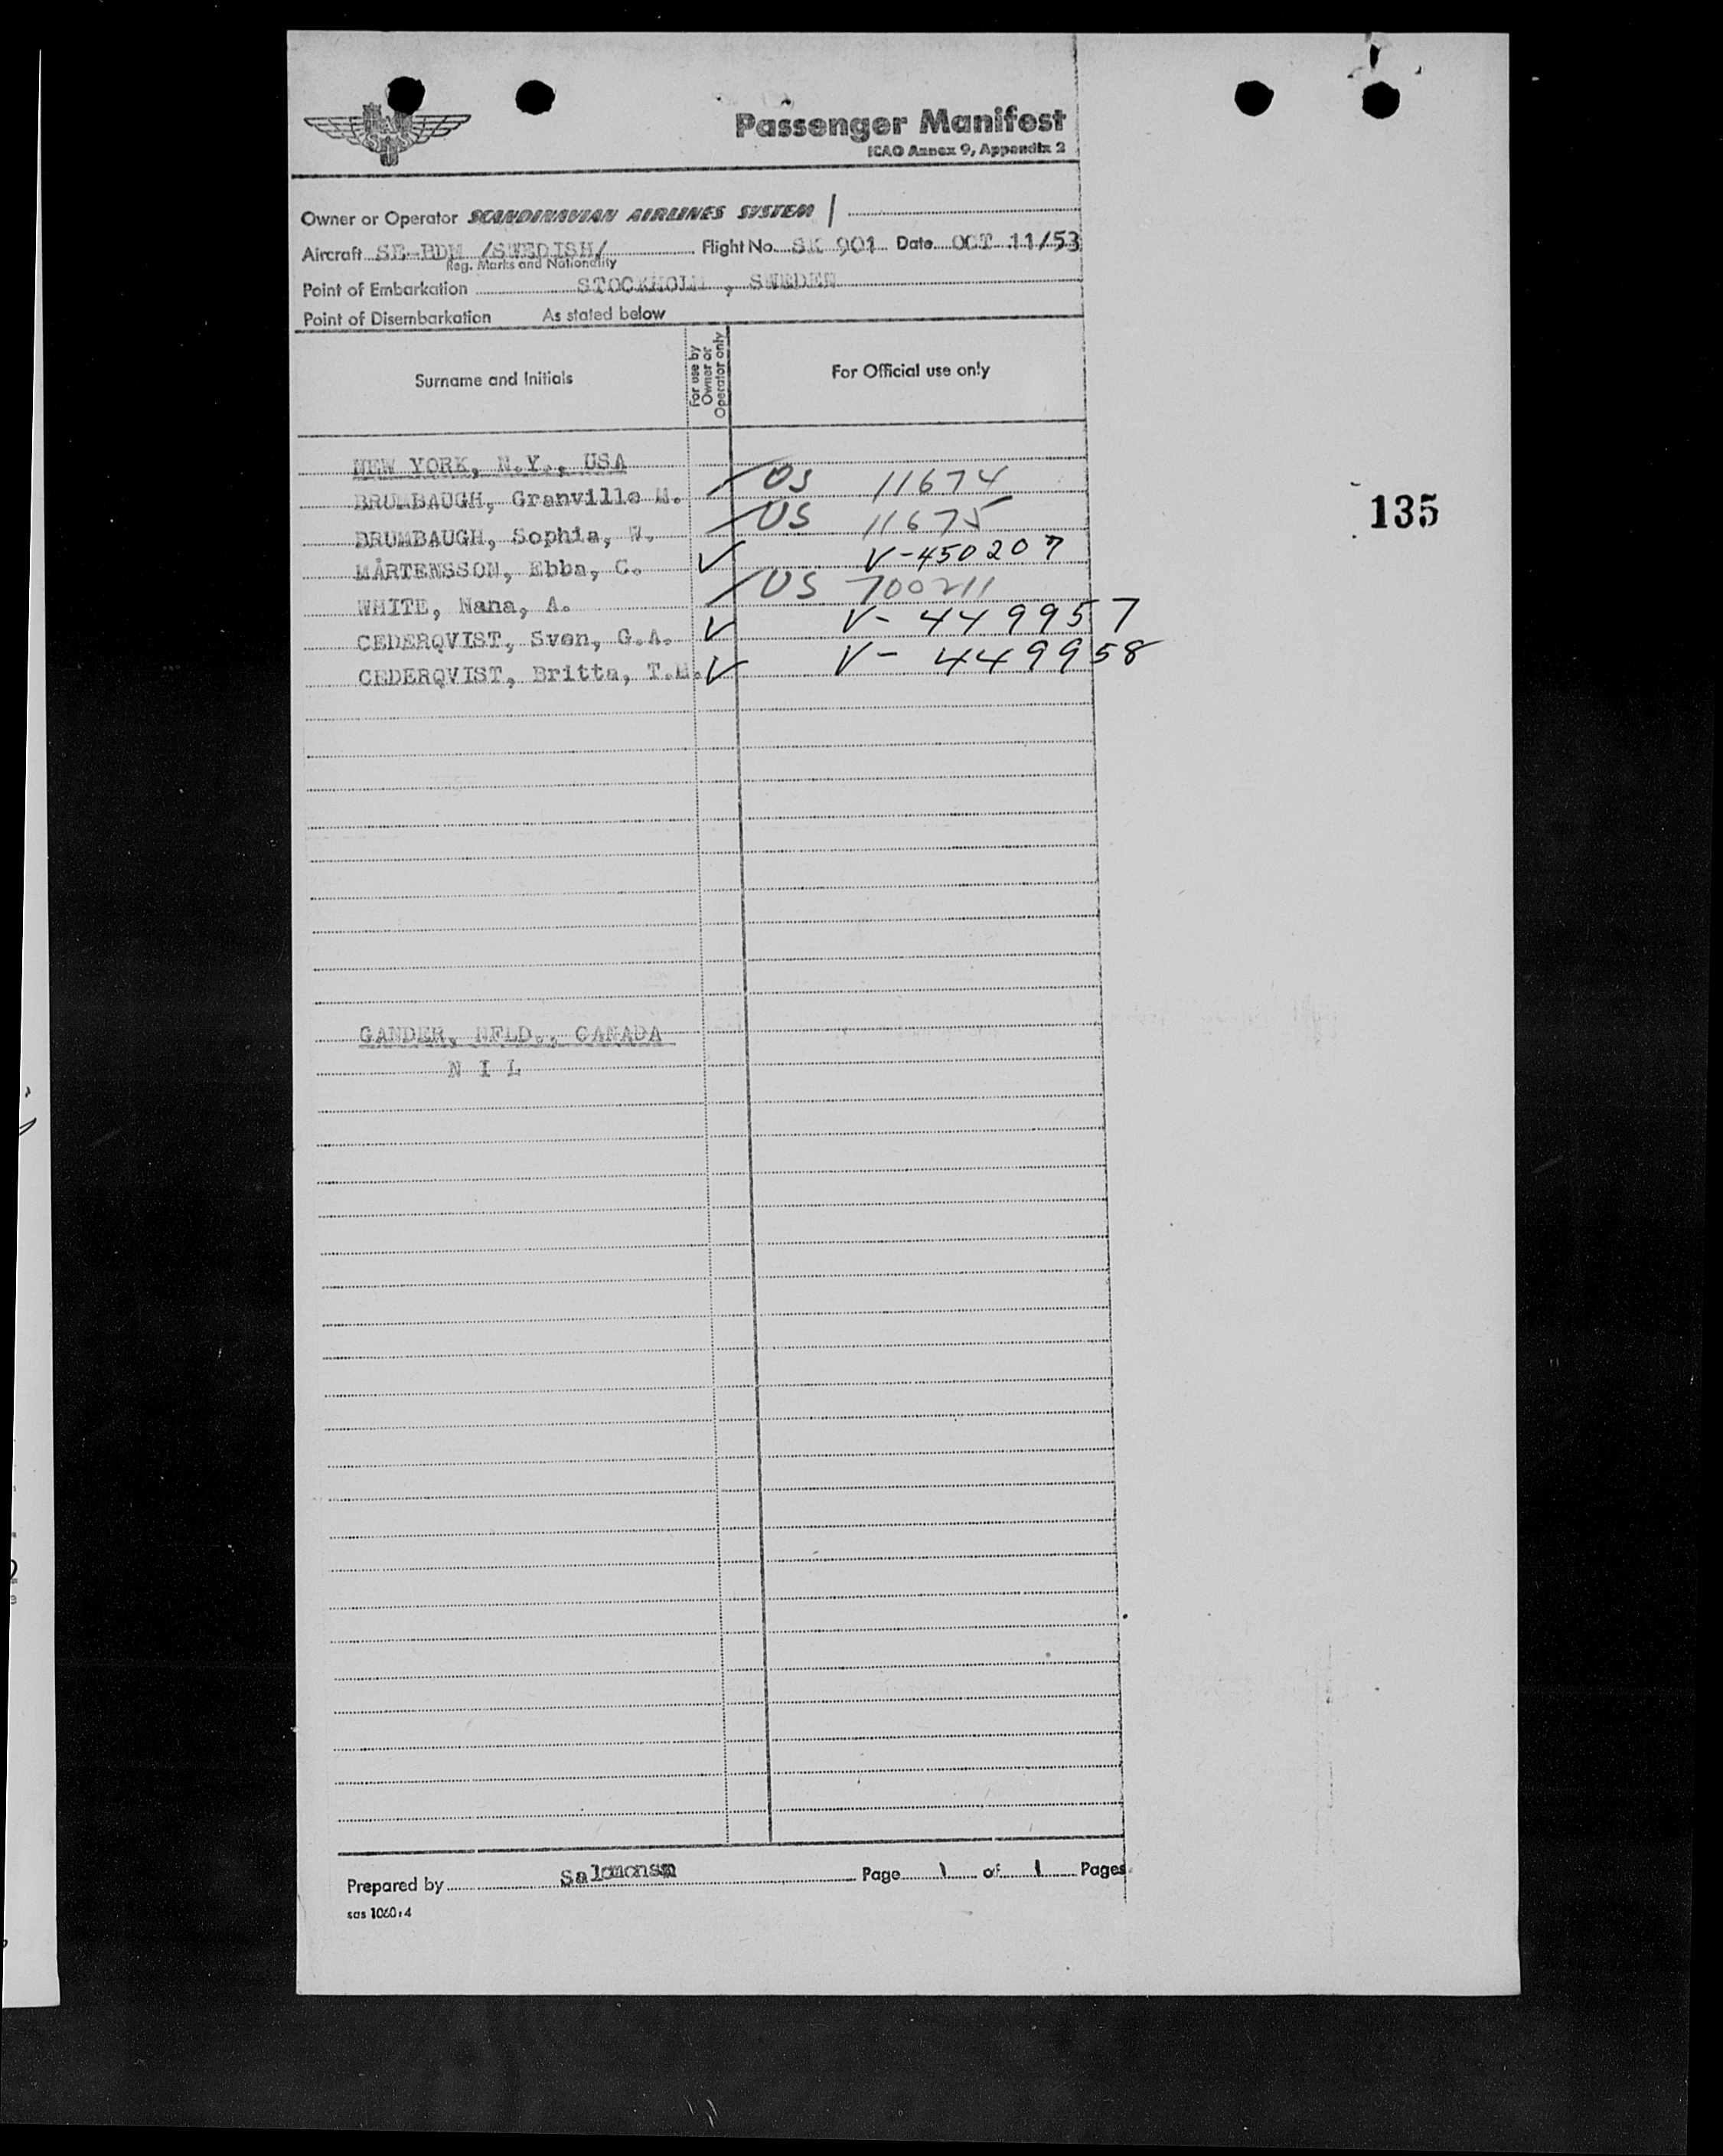 Passenger Manifest
ICAO Annex 9, Appendix 2
Owner or Operator SCANDINAVIAN AIRLINES SYSTEM
Aircraft SE-BDM /SWEDISH/ Flight No. SK 901 Date OCT 11/53
Reg. Marks and Nationality
Point of Embarkation STOCKHOLM, SWEDEN
Point of Disembarkation As stated below
Surname and Initials For use by Owner or Operator only For Official use only
NEW YORK, N.Y., USA
BRUMBAUGH, Granville M. / US 11674
BRUMBAUGH, Sophia, W. / US 11675
MÅRTENSSON, Ebba, C. ✓ V-450207
WHITE, Nana, A. / US 700211
CEDERQVIST, Sven, G.A. ✓ V-449957
CEDERQVIST, Britta, T.M. ✓ V-449958
135
GANDER, NFLD., CANADA
N I L
Prepared by Salomonsn Page 1 of 1 Pages
sas 1060:4